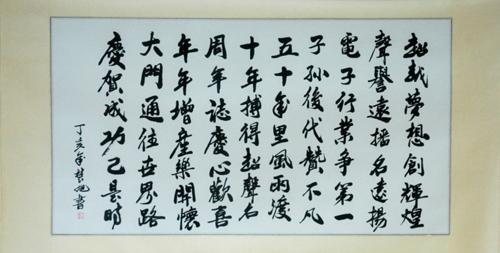 超越夢想創輝煌
聲譽遠播名遠揚
電子行業爭第一
子孫後代贊不凡
五十年里風雨渡
十年搏得超聲名
周年誌慶心歡喜
年年增產樂開懷
大門通往世界路
慶賀成功已是時
丁亥年書